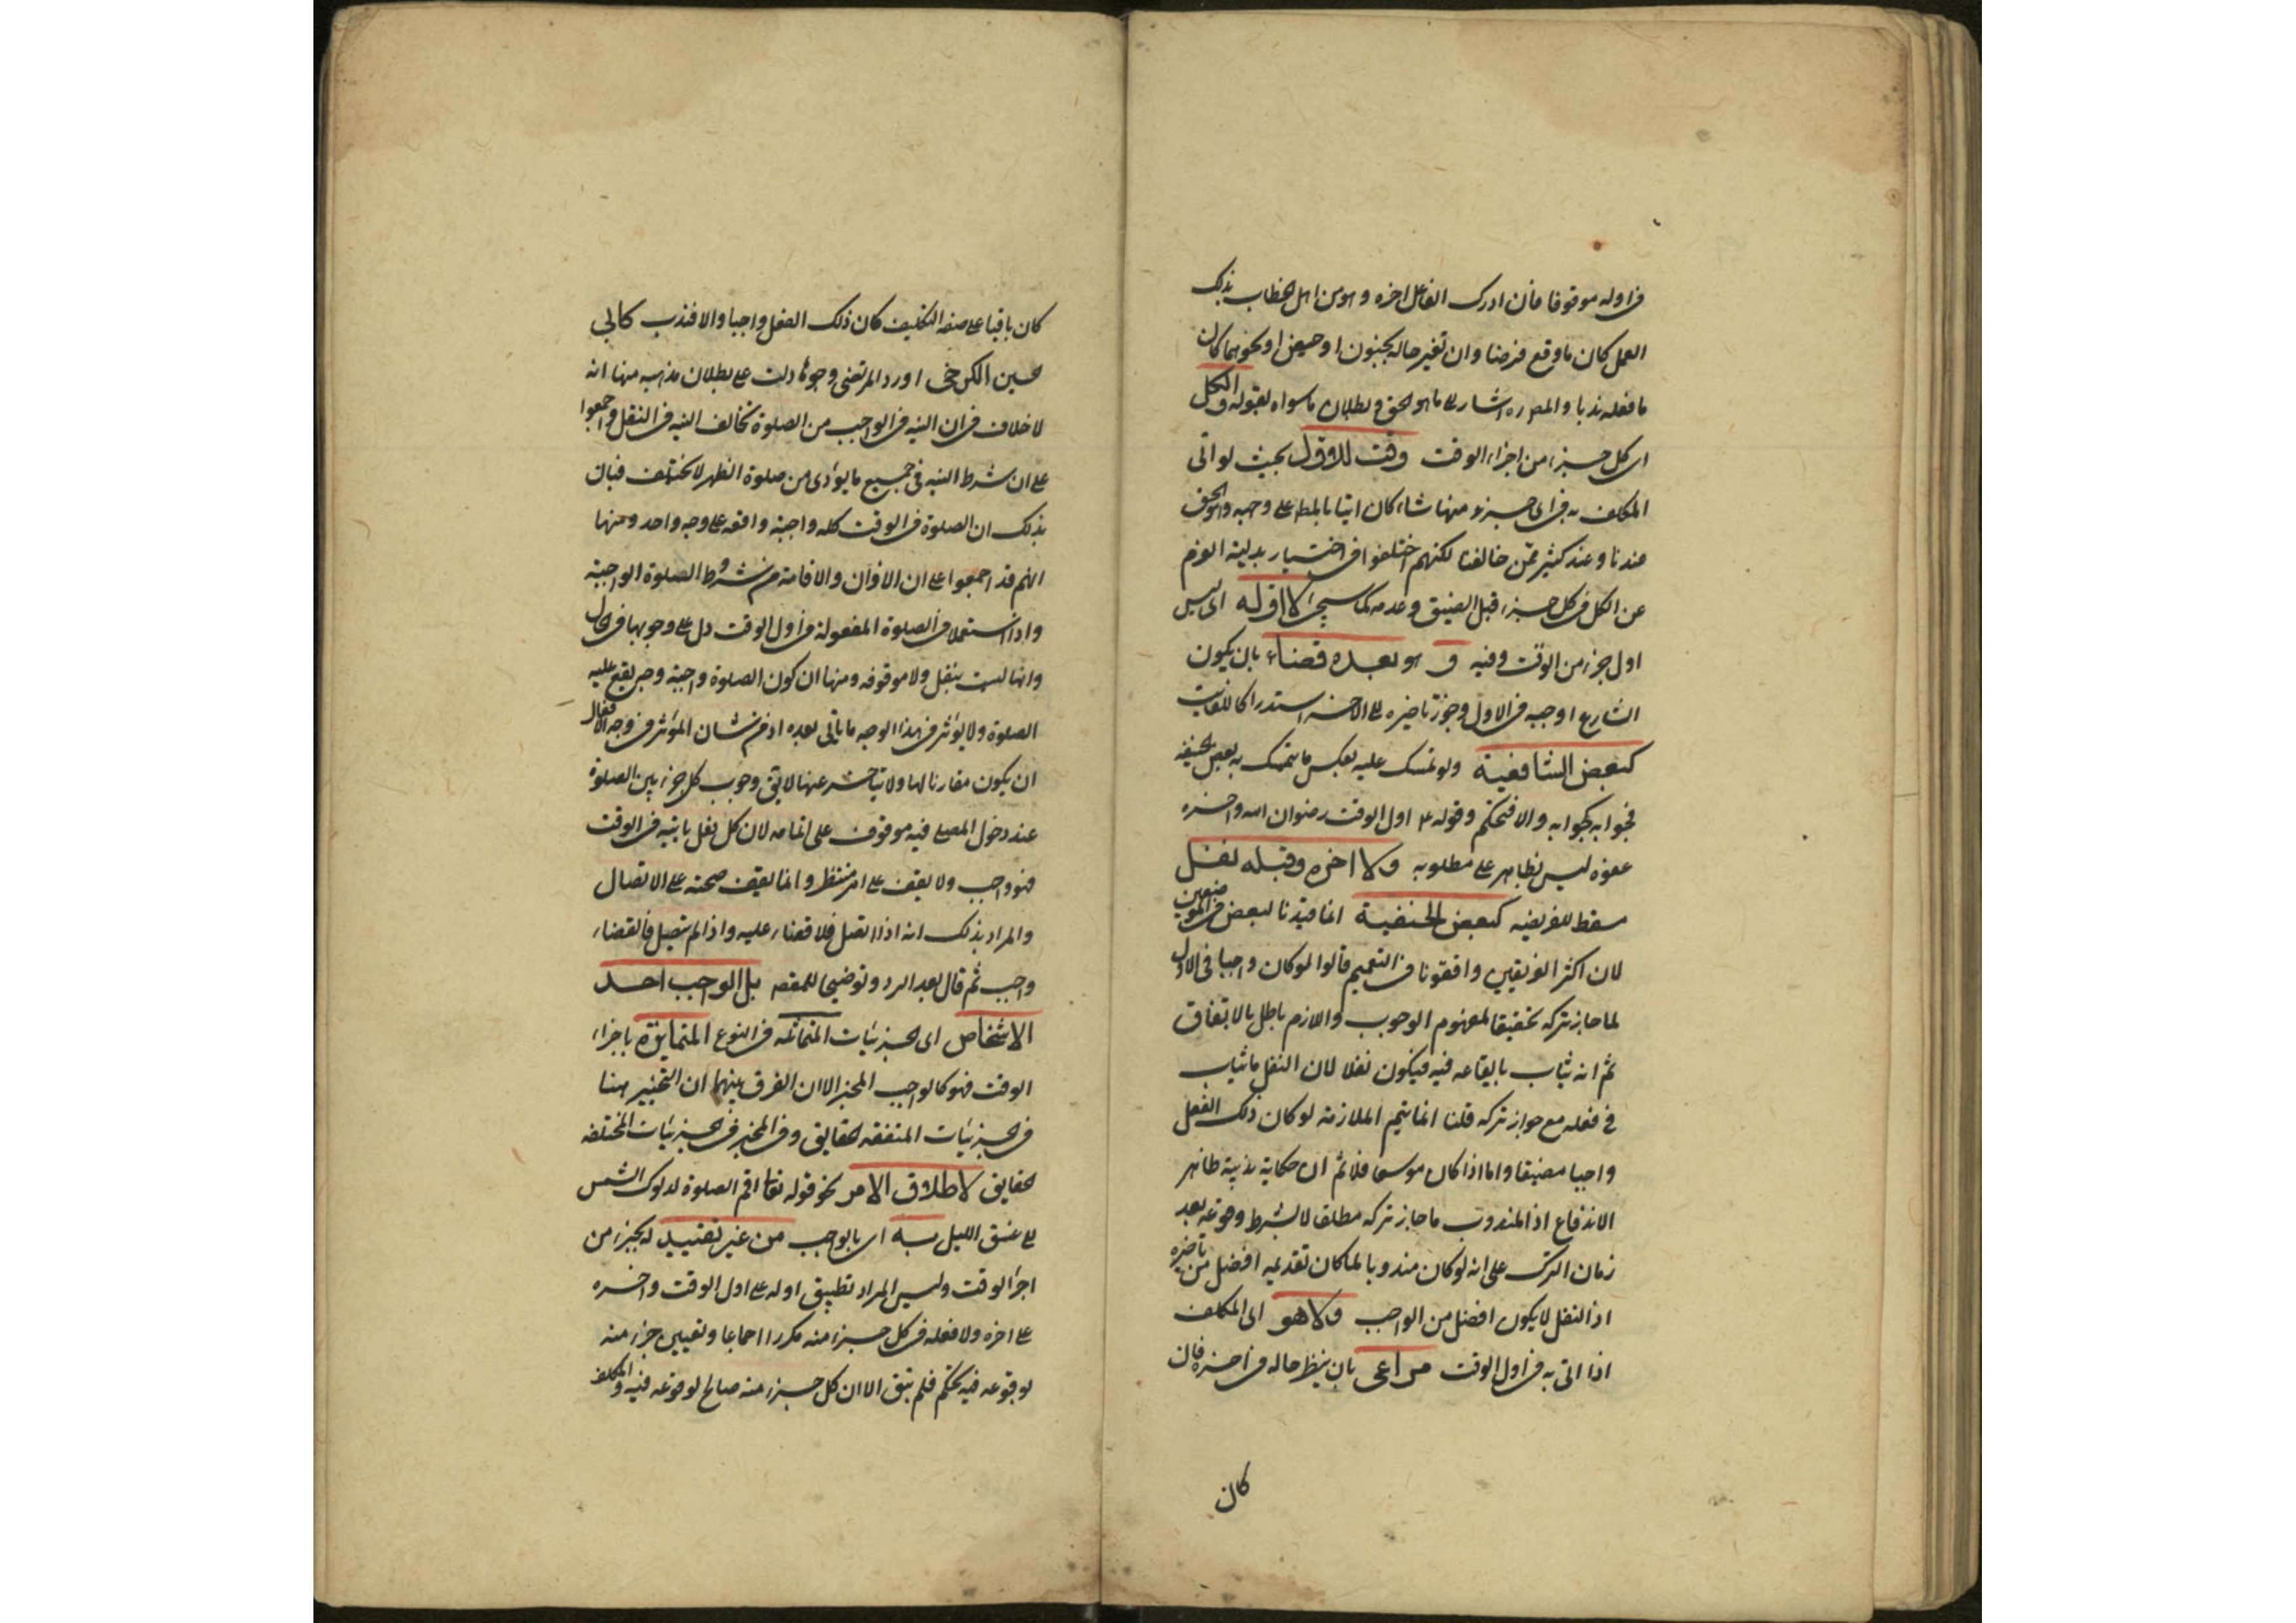 في اوله موقوفا فان ادرك الفاعل اخره وهو من اهل الخطاب بذلك
العمل كان ما وقع فرضا وان تغير حاله بجنون او حيض او نحوهما كان
ما فعله ندبا والمص ره اشار الى ما هو الحق وبطلان ما سواه بقوله والكل
اى كل جزء من اجزاء الوقت وقت للاول بحيث لو اتى
المكلف به في اى جزء منها شاء كان اتيا بالمط على وجهه والحق
عندنا وعند كثير ممن خالفنا لكنهم اختلفوا في اختيار بدلية العزم
عن الكل في كل جزء قبل الضيق وعدمه كما سيجئ لا اوله اى ليس
اول جزء من الوقت وفيه و هو بعده قضاء بان يكون
الشارع اوجبه في الاول وجوز تاخيره الى الاخر استدراكا للفايت
كبعض الشافعية ولو تمسك عليه بعكس ما تمسك به بعض الحنيفة
فجوابه كجوابه والا فتحكم وقوله ع اول الوقت رضوان الله واخره
عفوه ليس بظاهر على مطلوبه ولا اخره وقبله نفل
مسقط للفريضه كبعض الحنفية انما قيدنا لبعض في الموضعين
لان اكثر الفريقين وافقونا في التعميم قالوا لو كان واجبا في الاول
لما جاز تركه تحقيقا لمفهوم الوجوب واللازم باطل بالاتفاق
ثم انه يثاب بايقاعه فيه فيكون نفلا لان النفل ما يثاب
في فعله مع جواز تركه قلنا انما يتم الملازمة لو كان ذلك الفعل
واجبا مضيقا واما اذا كان موسعا فلا ثم ان حكاية ندبية ظاهر
الاندفاع اذ المندوب ما جاز تركه مطلقا لا بشرط وقوعه بعد
زمان الترك على انه لو كان مندوبا لما كان تقديمه افضل من تأخيره
اذ النفل لا يكون افضل من الواجب ولا هو اى المكلف
اذا اتى به في اول الوقت مراعى بان ينظر حاله في اخره فان
كان
كان باقيا على صفة التكليف كان ذلك الفعل واجبا والا فندب كابي
لحسين الكرخي اورد المرتضى وجوها دلت على بطلان مذهبه منها انه
لا خلاف في ان النيه في الواجب من الصلوة تخالف النيه في النفل واجمعوا
على ان شرط النيه في جميع ما يؤدى من صلوة الظهر لا تختلف فبان
بذلك ان الصلوة في الوقت كله واجبة واقعه على وجه واحد ومنها
انهم قد اجمعوا على ان الاذان والاقامة من شروط الصلوة الواجبة
واذا استعملا في الصلوة المفعولة في اول الوقت دل على وجوبها في الحال
وانها ليست بنفل ولا موقوفه ومنها ان كون الصلوة واجبة وجه يقع عليه
الصلوة ولا يؤثر في هذا الوجه ما يأتي بعده اذ من شان المؤثر في وجه الافعال
ان يكون مقارنا لها ولا يتاخر عنها لا يق وجوب كل جزء من الصلوة
عند دخول المصلى فيه موقوف على اتمامه لان كل فعل ياتيه في الوقت
فهو واجب ولا يقف على امر منتظر وانما يقف صحته على الاتصال
والمراد بذلك انه اذا اتصل فلا قضاء عليه واذا لم يتصل فالقضاء
واجب ثم قال بعد الرد وتوضيحا للمقصد بل الواجب احد
الاشخاص اى الجزئيات المتماثله في النوع المتمايزة باجزاء
الوقت فهو كالواجب المخير الا ان الفرق بينهما ان التخيير هنا
في الجزئيات المتفقه الحقايق وفي المخير في الجزئيات المختلفه
الحقايق لاطلاق الامر نحو قوله تعا اقم الصلوة لدلوك الشمس
الى غسق الليل به اى بالواجب من غير تقييد له بجزء من
اجزاء الوقت وليس المراد تطبيق اوله على اول الوقت واخره
على اخره ولا فعله في كل جزء منه مكررا اجماعا وتعيين جزء منه
لوقوعه فيه تحكم فلم يبق الا ان كل جزء منه صالح لوقوعه فيه والمكلف